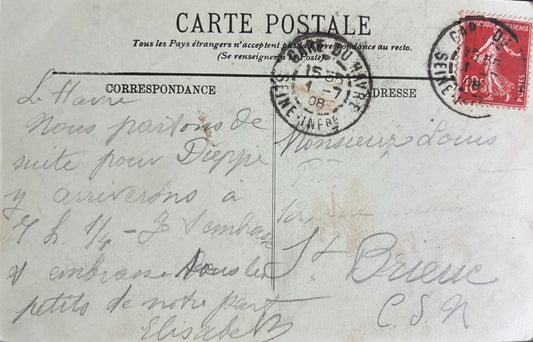 CARTE POSTALE
Tous les Pays étrangers n'acceptent pas la Correspondance au recto.
(Se renseigner à la Poste)
CORRESPONDANCE
ADRESSE
GARE DU HAVRE
15
1 -7
08
SEINE-INFRE
GARE DU
SEINE
RÉPUBLIQUE FRANÇAISE
10
POSTES
Le Havre
Nous partons de
suite pour Dieppe
y arriverons à
7 h. 1/4 -
embrasse tous les
petits de notre part
Elisabeth
Monsieur Louis
12 rue
St Brieuc
C. S. N